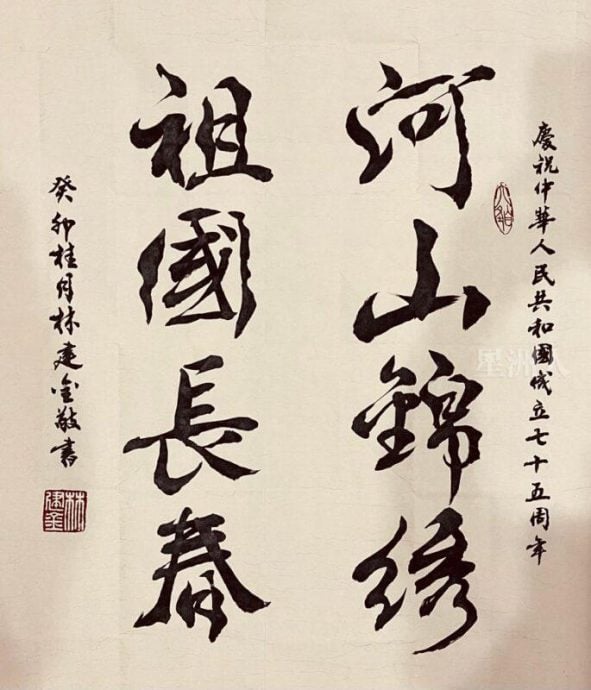 慶祝中華人民共和國成立七十五周年
河山錦绣
祖國長春
癸卯桂月林建金敬書
林建金
星洲人